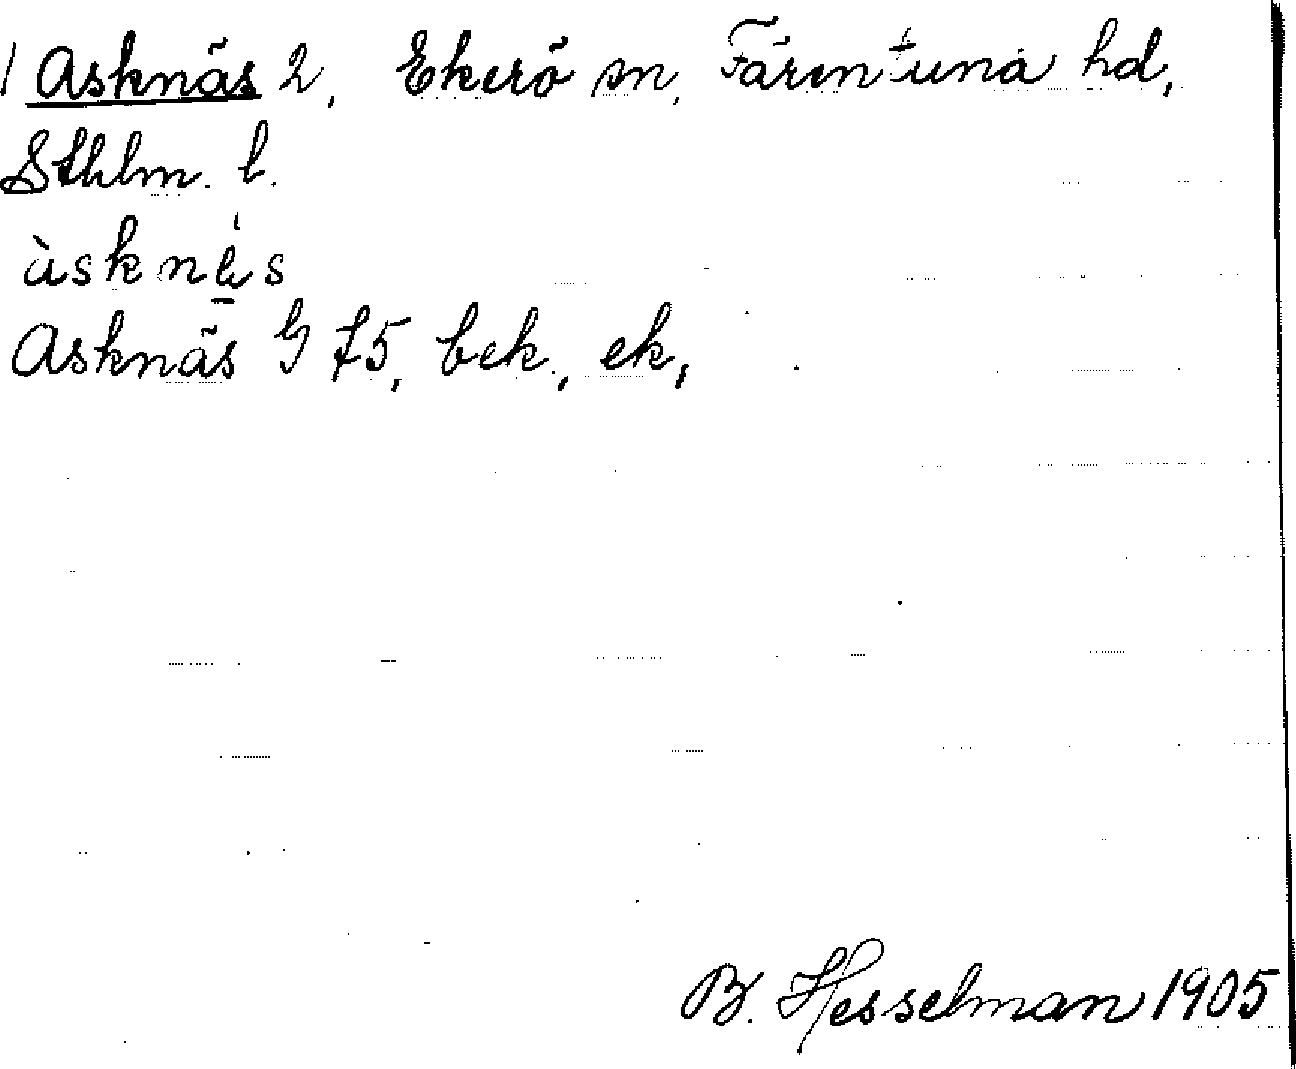 Asknäs 2, Ekerö sn, Färentuna hd,
Sthlm. l.
àsknäs
Asknäs G 75, bek, ek,
B. Hesselman 1905